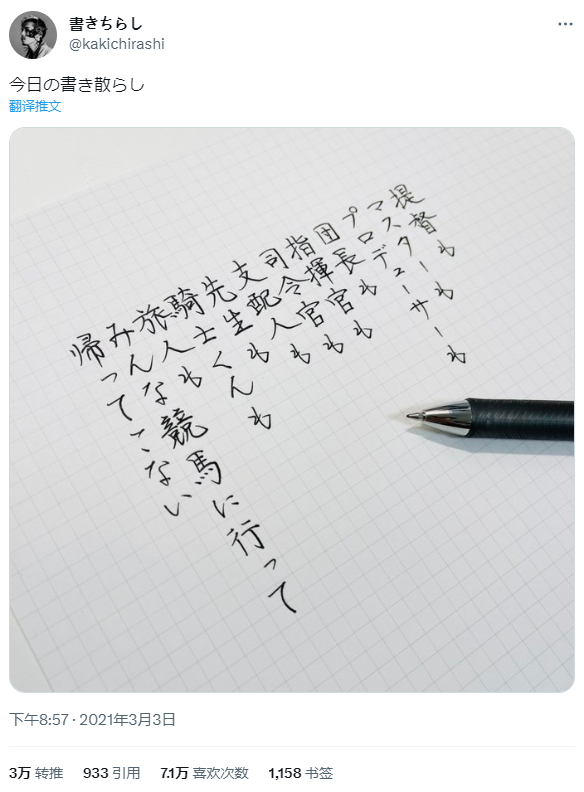 書きちらし
@kakichirashi
今日の書き散らし
翻译推文
提督も
マスターも
プロデューサーも
団長も
指揮官も
司令官も
支配人も
先生も
騎士くんも
旅人も
みんな競馬に行って
帰ってこない
下午8:57 · 2021年3月3日
3万 转推 933 引用 7.1万 喜欢次数 1,158 书签